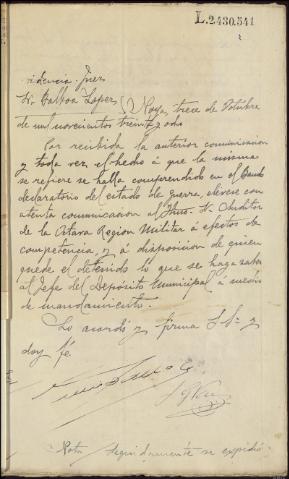 L.2430.541
Providencia Juez
Sr. Balboa Lopez
Noya, trece de Octubre
de mil novecientos treinta y ocho
Por recibida la anterior comunicacion
y toda vez el hecho á que la misma
se refiere se halla comprendido en el Bando
declaratorio del estado de guerra, elévese con
atenta comunicación al Iltmo. Sr. Auditor
de la Octava Region Militar á efectos de
competencia, y á disposicion de quien
quede el detenido lo que se haga saber
al Jefe del Depósito Municipal á medio
de mandamiento.
Lo acordó y firma S Sª y
doy fé.
Nota Seguidamente se expidió